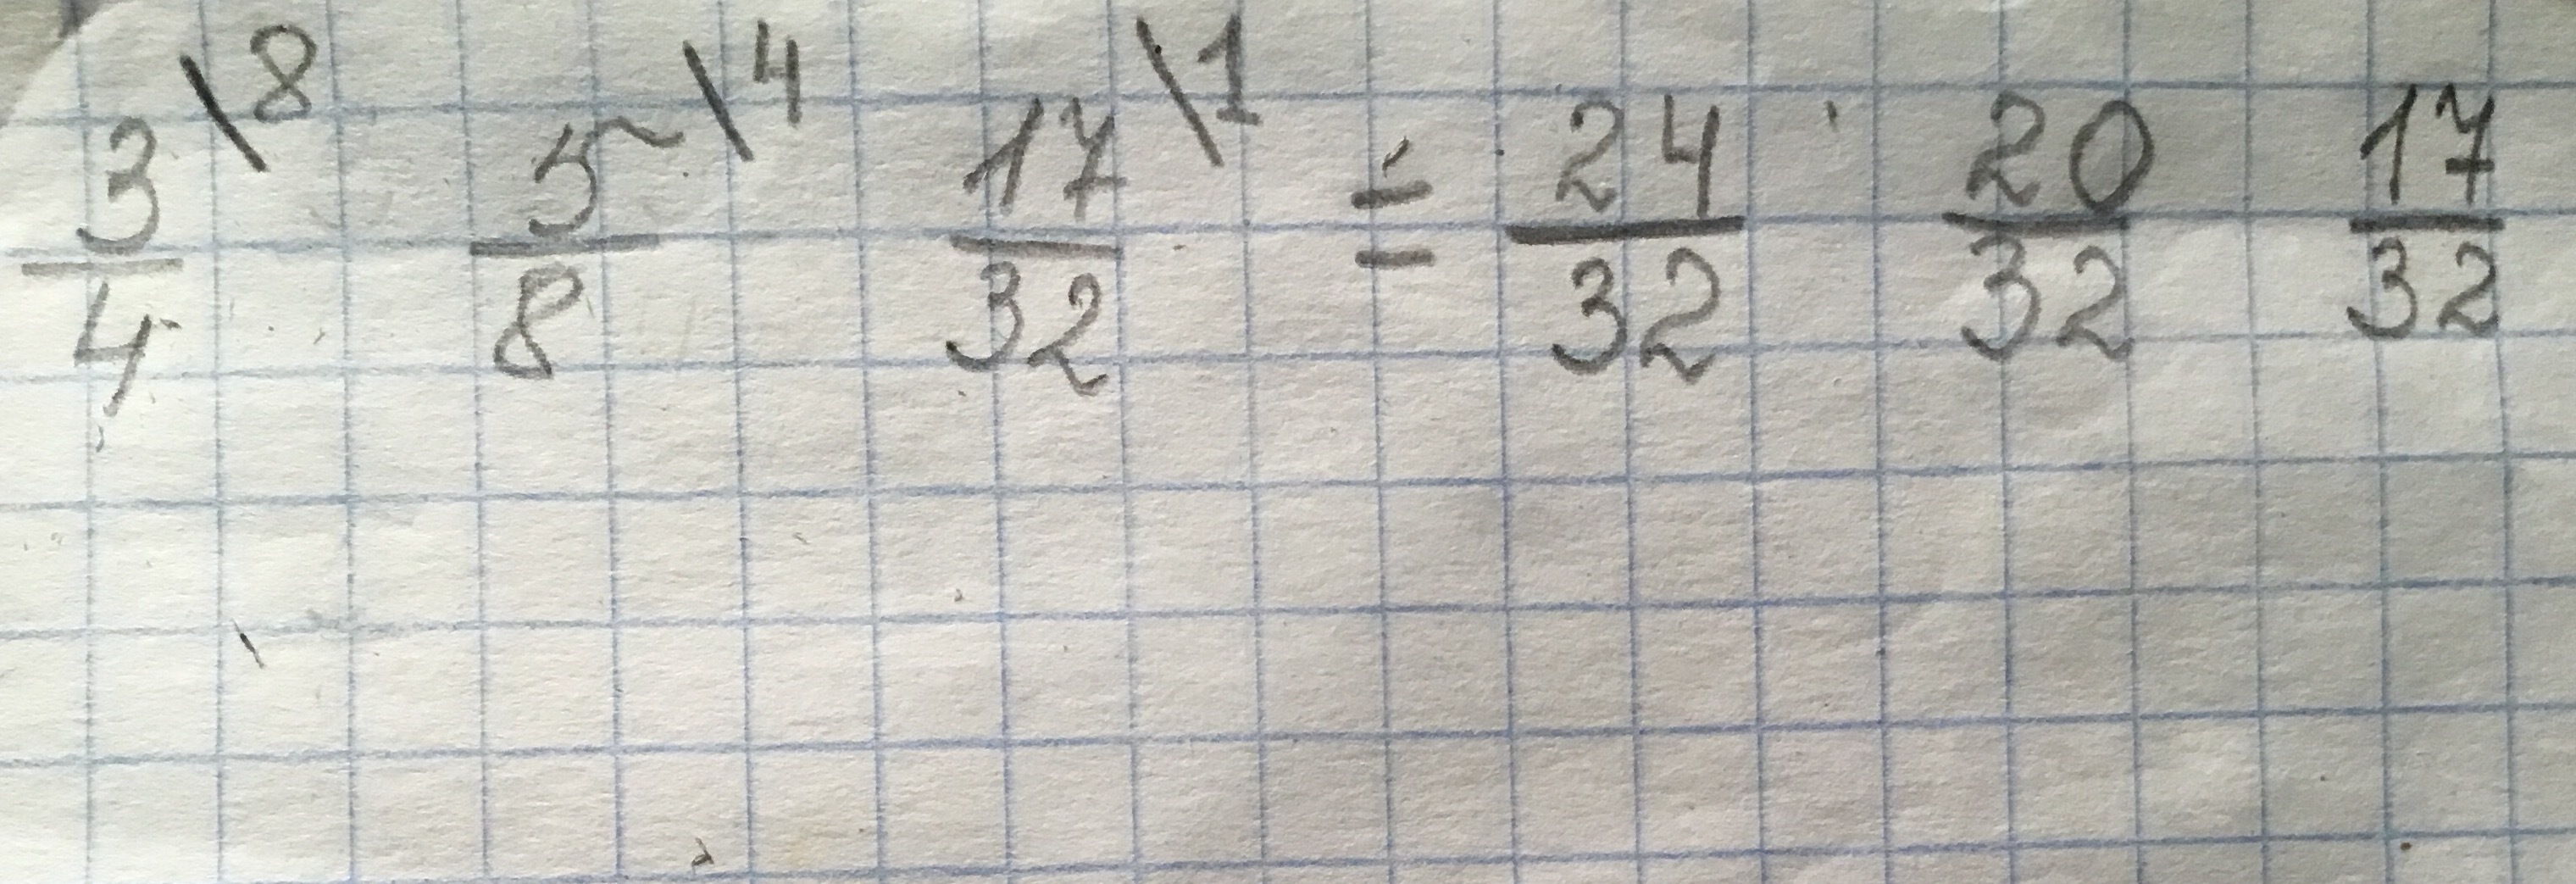 3/4 \8 5/8 \4 17/32 \1 = 24/32 20/32 17/32